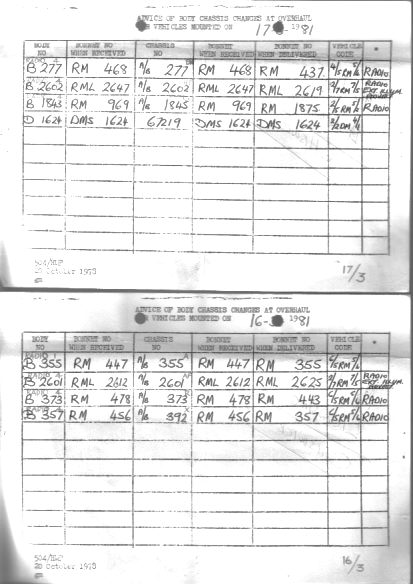 ADVICE OF BODY CHASSIS CHANGES AT OVERHAUL
R VEHICLES MOUNTED ON 17 1981
BODY NO BONNET NO WHEN RECEIVED CHASSIS NO BONNET WHEN RECEIVED BONNET NO WHEN DELIVERED VEHICLE CODE *
B 277 RM 468 A/B 277 RM 468 RM 437 4/5RM5/6 RADIO
B 2602 RML 2647 A/B 2602 RML 2647 RML 2619 RADIO EXT ILLUM.
B 1843 RM 969 A/B 1845 RM 969 RM 1875 RADIO
D 1624 DMS 1624 67219 DMS 1624 DMS 1624
20 October 1978
17/3
ADVICE OF BODY CHASSIS CHANGES AT OVERHAUL
R VEHICLES MOUNTED ON 16- 1981
BODY NO BONNET NO WHEN RECEIVED CHASSIS NO BONNET WHEN RECEIVED BONNET NO WHEN DELIVERED VEHICLE CODE *
RADIO A
B 355 RM 447 A/B 355 RM 447 RM 355 RADIO
RADIO A
B 2601 RML 2612 A/B 2601 RML 2612 RML 2625 RADIO EXT ILLUM.
RADIO A
B 373 RM 478 A/B 373 RM 478 RM 443 RADIO
B 357 RM 456 A/B 392 RM 456 RM 357 RADIO
20 October 1978
16/3